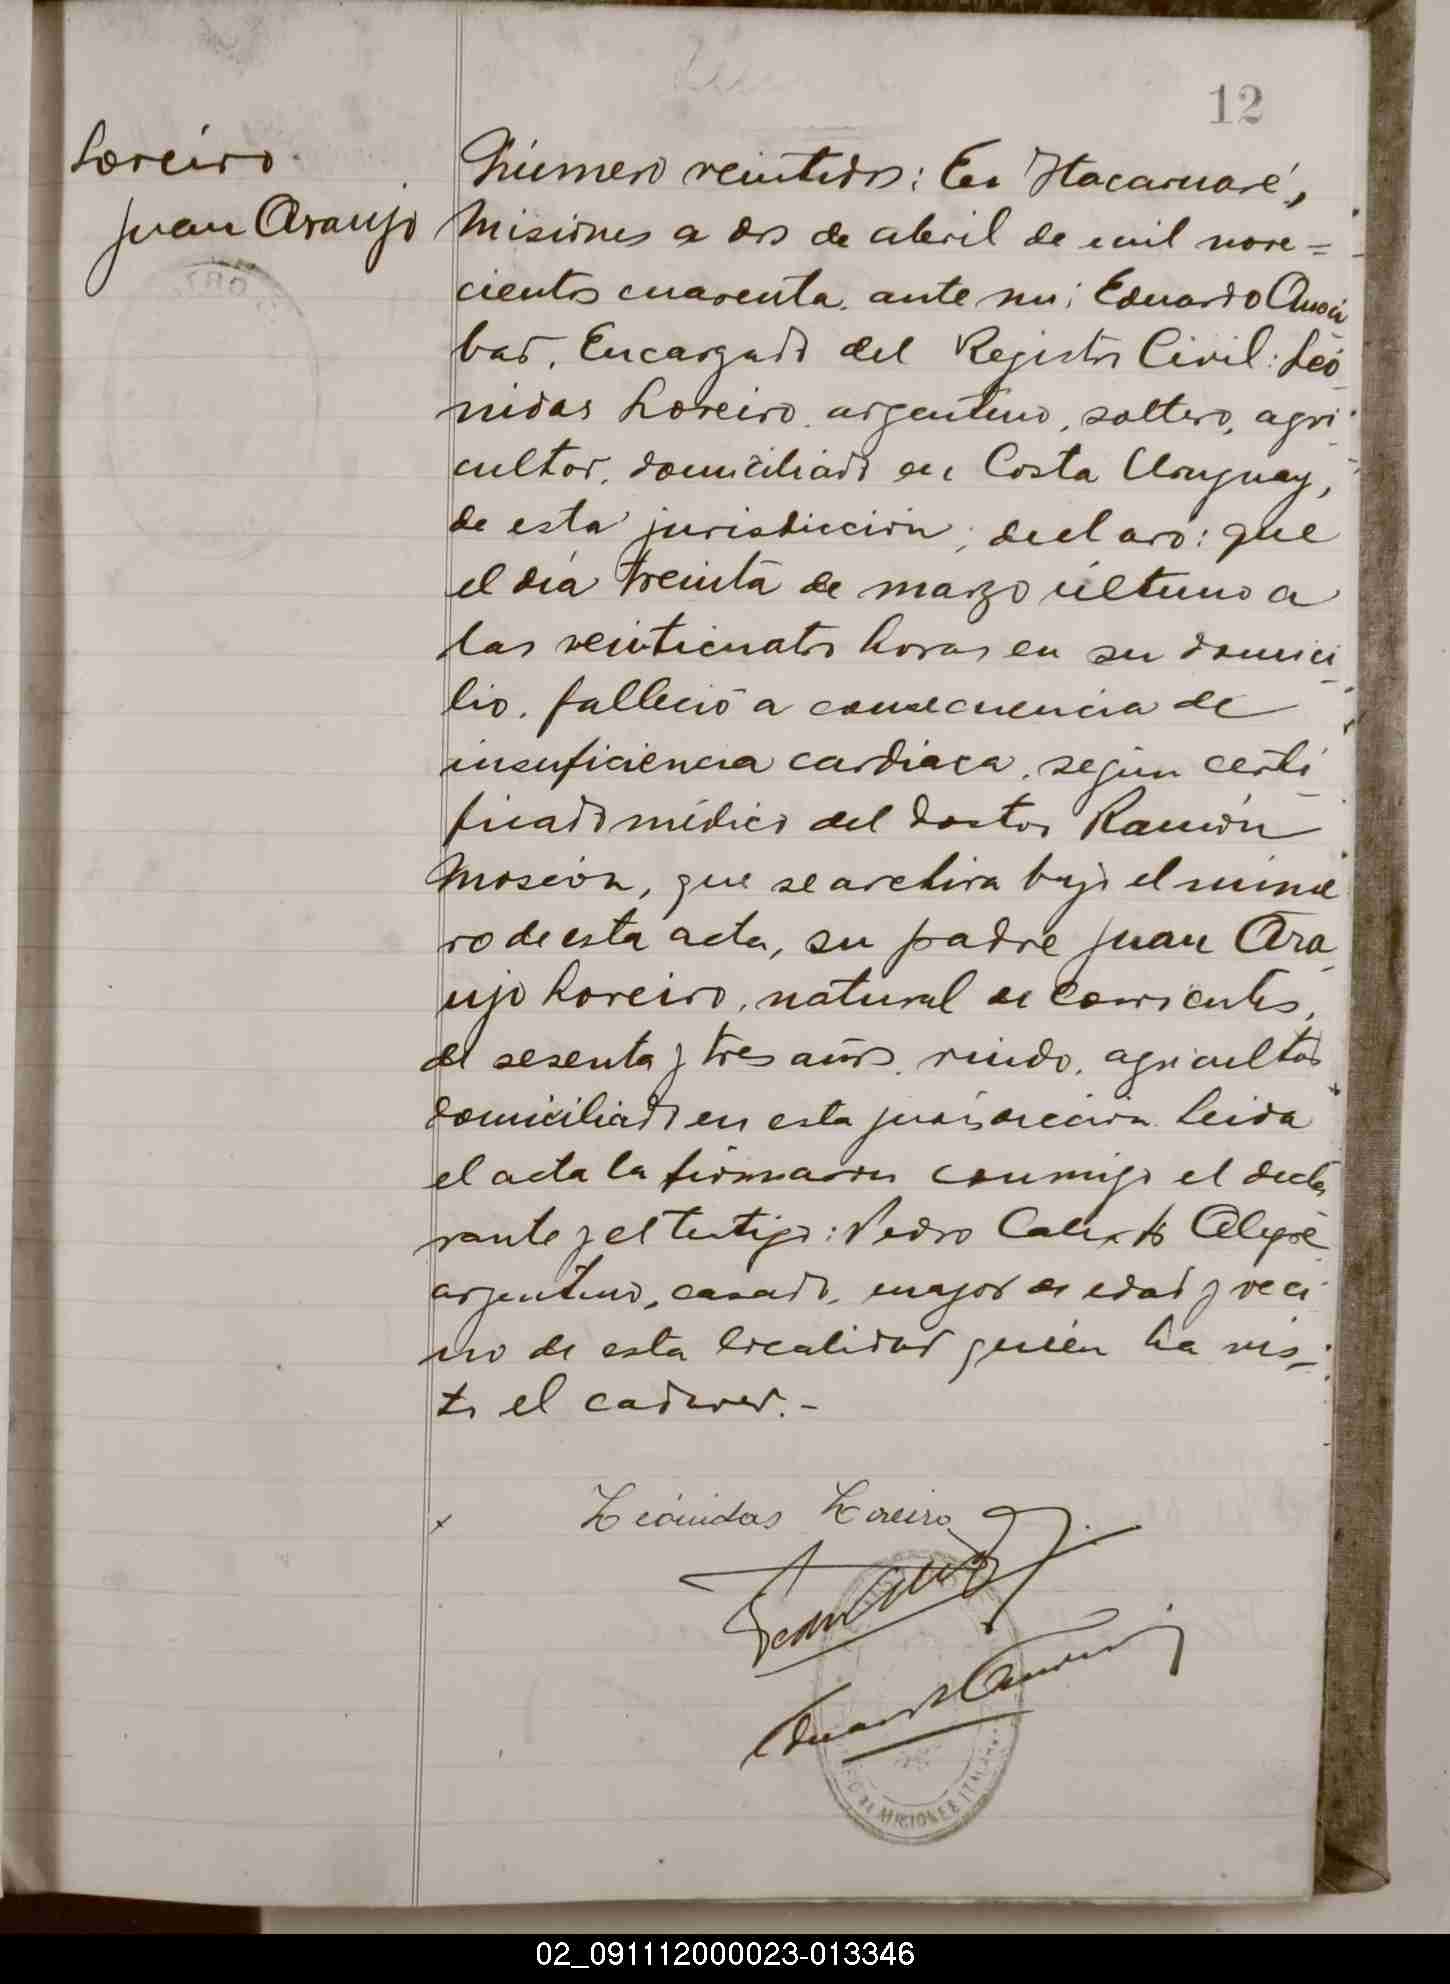 12
Loreiro
Juan Araujo
Número veintidos: En Itacaruaré,
Misiones a dos de abril de mil nove=
cientos cuarenta. ante mi: Eduardo
bar. Encargado del Registro Civil: Leó
nidas Loreiro. argentino, soltero, agri
cultor, domiciliado en Costa Uruguay,
de esta jurisdicción; declaró: que
el día treinta de marzo último a
las veinticuatro horas en su domici
lio. falleció a consecuencia de
insuficiencia cardiaca, según certi
ficado médico del doctor Ramón
que se archiva bajo el núme
ro de esta acta, su padre Juan Ara
ujo Loreiro, natural de Corrientes,
de sesenta y tres años. viudo. agricultor
domiciliado en esta jurisdicción. Leida
el acta la firmaron conmigo el decla
rante y el testigo: Pedro Calixto Alegre
argentino, casado, mayor de edad y veci
no de esta localidad quién ha vis-
to el cadaver.-
x Leónidas Loreiro
MISIONES
02_091112000023-013346